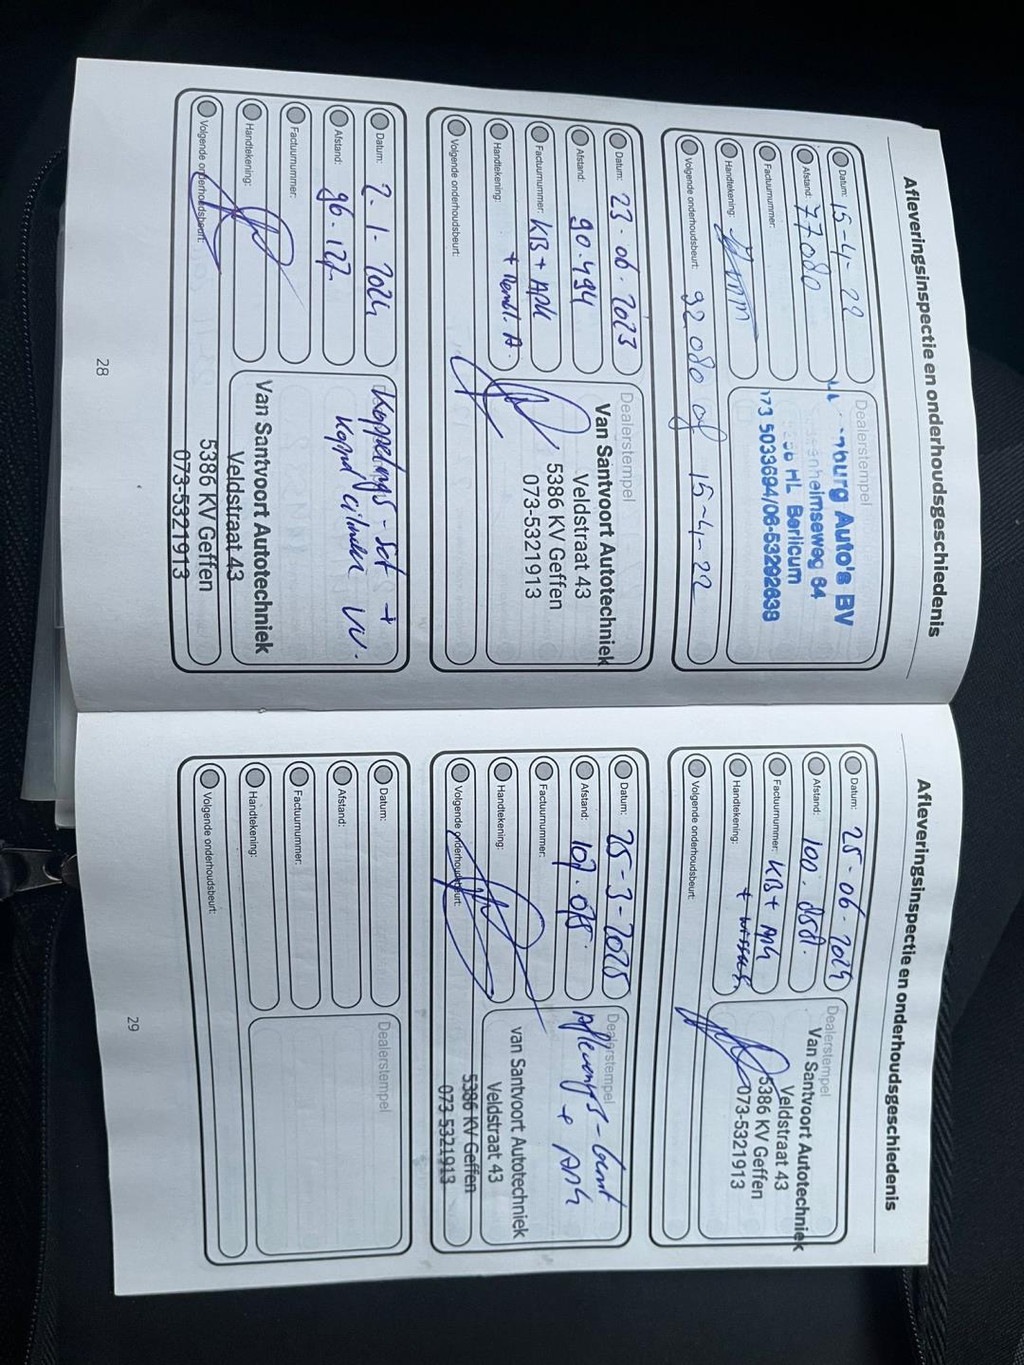 Afleveringsinspectie en onderhoudsgeschiedenis
Datum: 15-4-22
Afstand: 77080
Factuurnummer:
Handtekening:
Volgende onderhoudsbeurt: 92.080 of 15-4-22
Dealerstempel
nburg Auto's BV
enheimseweg 64
HL Berlicum
073 5033694/06-53292638
Datum: 23-06-2023
Afstand: 90.494
Factuurnummer: KB + APK
Handtekening: + Remvl. A.
Volgende onderhoudsbeurt:
Dealerstempel
Van Santvoort Autotechniek
Veldstraat 43
5386 KV Geffen
073-5321913
Datum: 2-1-2024
Afstand: 96-127
Factuurnummer:
Handtekening:
Volgende onderhoudsbeurt:
Koppelings-set +
Koppel cilinder VV.
Van Santvoort Autotechniek
Veldstraat 43
5386 KV Geffen
073-5321913
28
Afleveringsinspectie en onderhoudsgeschiedenis
Datum: 25-06-2024
Afstand: 100.
Factuurnummer: KB + APK
Handtekening: + wissers
Volgende onderhoudsbeurt:
Dealerstempel
Van Santvoort Autotechniek
Veldstraat 43
5386 KV Geffen
073-5321913
Datum: 25-3-2025
Afstand: 107.075
Factuurnummer:
Handtekening:
Volgende onderhoudsbeurt:
Dealerstempel
Afleverings-beurt
+ APK
van Santvoort Autotechniek
Veldstraat 43
5386 KV Geffen
073 5321913
Datum:
Afstand:
Factuurnummer:
Handtekening:
Volgende onderhoudsbeurt:
Dealerstempel
29